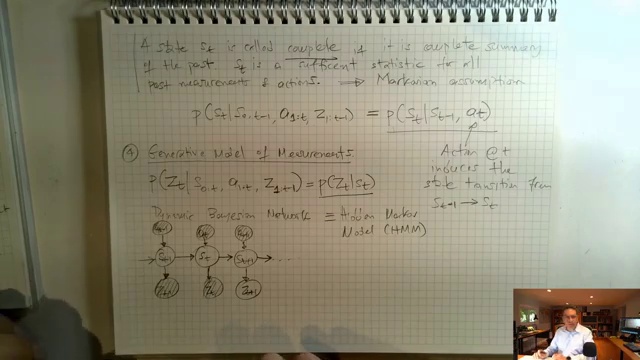 A state St is called complete if it is complete summary
of the past St is a sufficent statistic for all
past measurements & actions. ⟹ Markovian assumption
p(St|S0:t-1, a1:t, Z1:t-1) = p(St|St-1, at)
④ Generative Model of Measurements
Action @ t
induces the
state transition from
St-1 → St
p(Zt|S0:t, a1:t, Z1:t-1) = p(Zt|St)
Dynamic Bayesian Network ≡ Hidden Markov
Model (HMM)
at-1 at at+1
St-1 St St+1 ...
Zt-1 Zt Zt+1